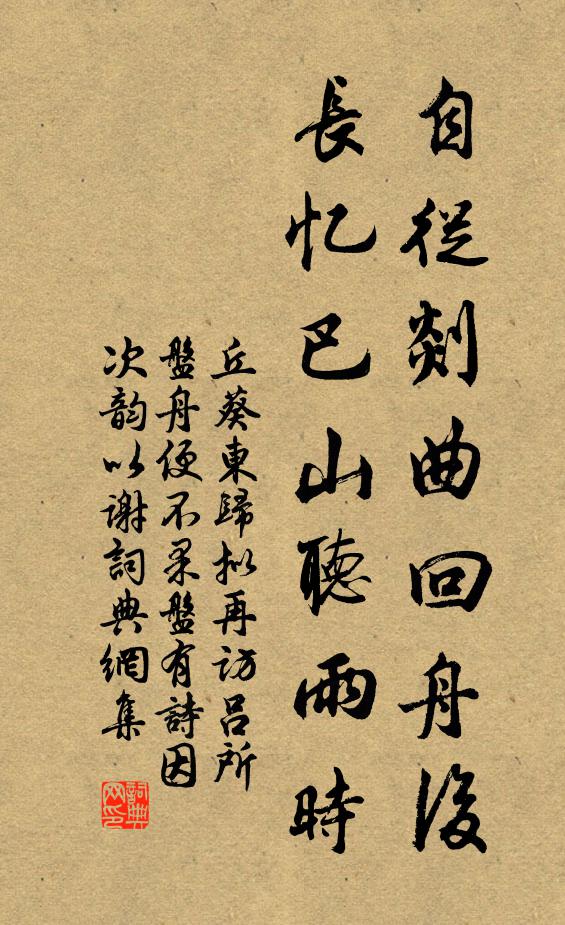 自從剡曲回舟後
長忆巴山聽雨時
丘葵東歸拟再访吕所
盤舟便不果盤有詩因
次韵以谢詞典網集
詞典网印